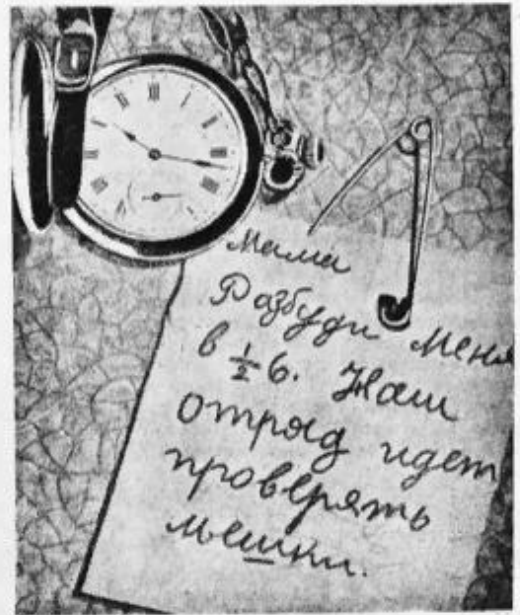 Мама
Разбуди меня
в ½ 6. Наш
отряд идет
проверять
мешки.